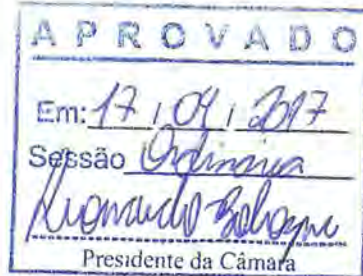 APROVADO
Em: 17 / 04 / 2017
Sessão Ordinária
Presidente da Câmara